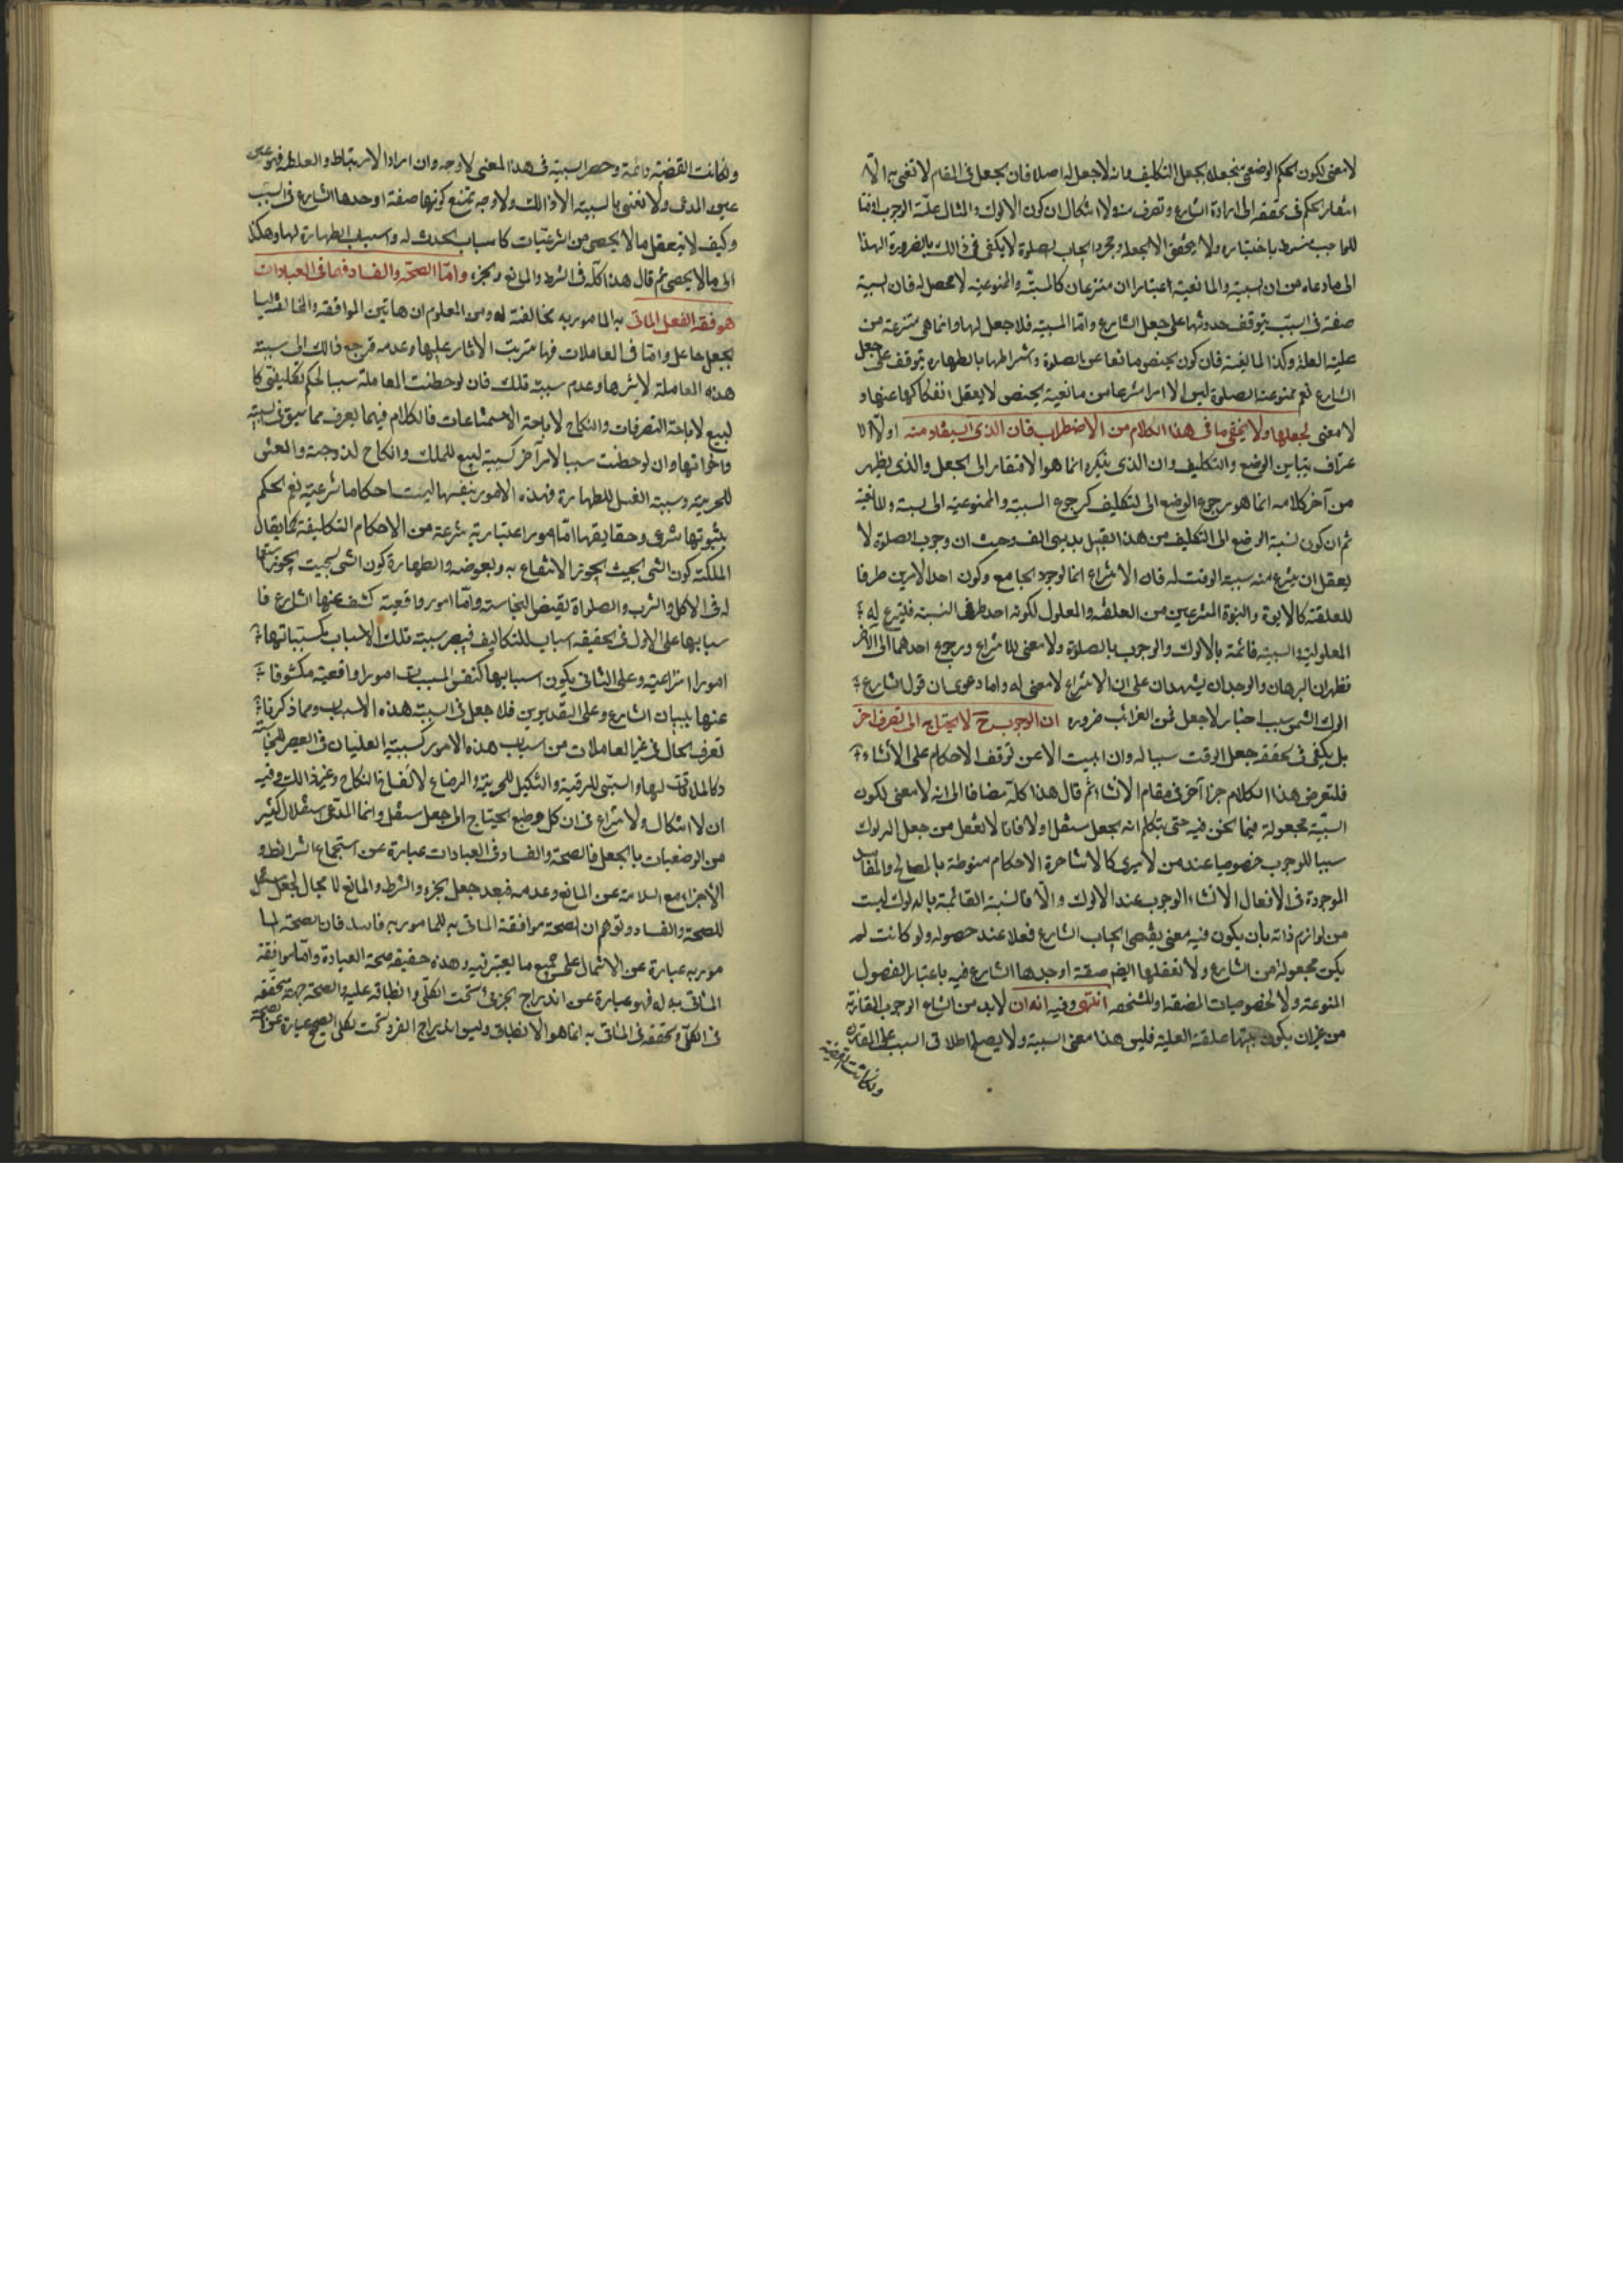 لا معنى لكون الحكم الوضعي منجعلا بجعل التكليف فانه لا جعل له اصلا فان الجعل في المقام لا نعني به الا
افتقار الحكم في تحققه الى ارادة الشارع وتصرف منه ولا اشكال ان كون الدلوك في المثال علة الوجوب
للواجب منوط باختياره ولا يتحقق الا بجعله ومجرد ايجاب الصلوة لا يكفي في ذالك بالضرورة
الى ما ادعاه من ان السببية والمانعية اعتباران منتزعان كالمسببية والممنوعية لا محصل له فان السببية
صفة في السبب يتوقف حدوثها على جعل الشارع واما المسببية فلا جعل لها وانما هي منتزعة من
علية العلة وكذا المانعية فان كون الحيض مانعا عن الصلوة واشتراطها بالطهارة يتوقف على جعل
الشارع نعم ممنوعية الصلوة ليس الا امرا منتزعا من مانعية الحيض لا يعقل انفكاكها عنها و
لا معنى لجعلها ولا يخفى ما في هذا الكلام من الاضطراب فان الذي استفاد منه اولا الا
عتراف بتباين الوضع والتكليف وان الذي ينكره انما هو الافتقار الى الجعل والذي يظهر
من آخر كلامه انما هو رجوع الوضع الى التكليف كرجوع المسببية والممنوعية الى السببية والمانعية
ثم ان كون نسبة الوضع الى التكليف من هذا القبيل بديهي الفساد حيث ان وجوب الصلوة لا
يعقل ان ينتزع منه سببية الوقت له فان الانتزاع انما لوجود الجامع وكون احد الامرين طرفا
للعلقة كالابوة والبنوة المنتزعين من العلقة والمعلول لكونه احد طرفي النسبة فلينتزع له
المعلولية والسببية قائمة بالدلوك والوجوب بالصلوة ولا معنى للانتزاع ورجوع احدهما الى الآخر
فظهر ان البرهان والوجدان يشهدان على ان الانتزاع لا معنى له واما دعوى ان قول الشارع
دلوك الشمس سبب اخبار لا جعل فمن الغرائب ضرورة ان الوجوب ح لا يحتاج الى تصرف آخر
بل يكفي في تحققه جعل الوقت سببا له وان ابيت الا عن توقف الاحكام على الانشاء
فلنعرض هذا الكلام جزءا آخر في مقام الانشاء ثم قال هذا كله مضافا الى انه لا معنى لكون
السببية مجعولة فيما نحن فيه حتى يتكلم انه بجعل مستقل او لا فانا لا نعقل من جعل الدلوك
سببا للوجوب خصوصا عند من لا يرى كالاشاعرة الاحكام منوطة بالمصالح والمفاسد
الموجودة في الافعال الا انشاء الوجوب عند الدلوك والا فالسببية القائمة بالدلوك ليست
من لوازم ذاته بان يكون فيه معنى يقتضي ايجاب الشارع فعلا عند حصوله ولو كانت لم
يكن مجعولة من الشارع ولا نعقلها ايضا صفة اوجدها الشارع فيه باعتبار الفصول
المنوعة ولا لخصوصيات المصنفة او المشخصة انتهى وفيه انه ان لابد من الشارع الوجوب المقارنة
من غير ان يكون بينهما علقة العلية فليس هذا معنى السببية ولا يصح اطلاق السبب على المقارن
ولكانت القضية
ولكانت القضية دائمة وحصر السببية في هذا المعنى لا وجه وان اراد الارتباط والعلقة فهو عين
عين المدعى ولا نعني بالسببية الا ذالك ولا وجه لمنع كونها صفة اوجدها الشارع في السبب
وكيف لا نتعقل ما لا يحصى من الشرعيات كاسباب الحدث له واسباب الطهارة لها وهكذا
الى ما لا يحصى ثم قال هذا كله في الشرط والمانع والجزء واما الصحة والفساد فهما في العبادات
موافقة الفعل الماتي به المامور به مخالفته له ومن المعلوم ان هاتين الموافقة والمخالفة ليسا
بجعل جاعل واما في المعاملات فهما ترتب الاثار عليها وعدمه فمرجع ذالك الى سببية
هذه المعاملة لاثرها وعدم سببية تلك فان لوحظت المعاملة سببا لحكم تكليفي كا
لبيع لاباحة التصرفات والنكاح لاباحة الاستمتاعات فالكلام فيهما يعرف مما سبق في السببية
واخواتها وان لوحظت سببا لامر آخر كسببية البيع للملك والنكاح للزوجية والعتق
للحرية وسببية الغسل للطهارة فهذه الامور بنفسها ليست احكاما شرعية نعم الحكم
بثبوتها شرعي وحقايقها اما امور اعتبارية منتزعة من الاحكام التكليفية كما يقال
الملكية كون الشي بحيث يجوز الانتفاع به وبعوضه والطهارة كون الشي بحيث يجوز استعماله
له في الاكل والشرب والصلوة نقيض النجاسة واما امور واقعية كشف عنها الشارع فا
سبابها على الاول في الحقيقة اسباب للتكاليف فيصير سببية تلك الاسباب كمسبباتها
امورا انتزاعية وعلى الثاني يكون اسبابها كنفس المسببات امورا واقعية مكشوفا
عنها ببيان الشارع وعلى التقديرين فلا جعل في السببية هذه الاسباب ومما ذكرنا
تعرف الحال في غير المعاملات من اسباب هذه الامور كسببية الغليان في العصير للنجاسة
وكالملاقات لها والسبي للرقية والتنكيل للحرية والرضاع لانفساخ النكاح وغير ذالك وفيه
ان لا اشكال ولا نزاع في ان كل وضع لا يحتاج الى جعل مستقل وانما المدعى استقلال كثير
من الوضعيات بالجعل فالصحة والفساد في العبادات عبارة عن استجماع الشرائط و
الاجزاء مع السلامة عن المانع وعدمه فبعد جعل الجزء والشرط والمانع لا مجال لجعل مستقل
للصحة والفساد وتوهم ان الصحة موافقة الماتي به للمامور به فاسد فان الصحة الما
مور به عبارة عن الاشتمال على جميع ما يعتبر فيه وهذه حقيقة صحة العبادة واما موافقة
الماتي به له فهو عبارة عن اندراج الجزئي تحت الكلي وانطباقه عليه والصحة جهة متحققة
في الكلي وتحققه في الماتي به انما هو الانطباق وليس اندراج الفرد تحت الكلي الصحيح عبارة عن الصحة